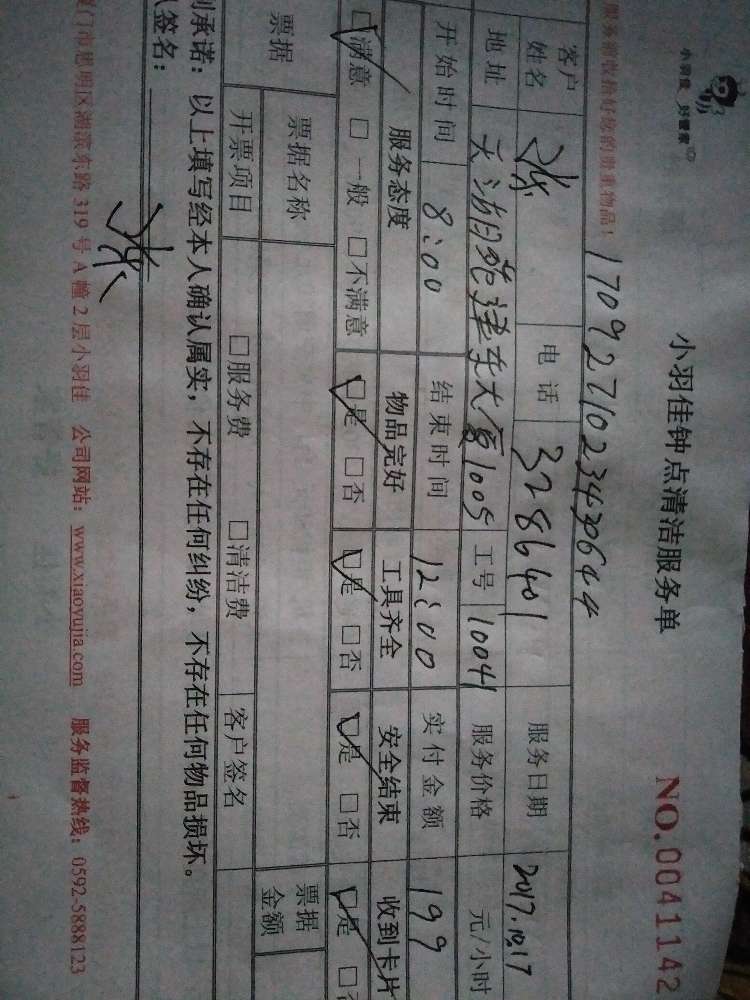 小羽佳 好管家
小羽佳钟点清洁服务单
NO.0041142
服务前收拾好您的贵重物品！
170927102343064 4
客户姓名 张 电话 3286401 服务日期 2017.10.17
地址 天湖苑建东大厦1005 工号 10041 服务价格 元/小时
开始时间 8:00 结束时间 12:00 实付金额 199
服务态度 物品完好 工具齐全 安全结束 收到卡片
☑满意 □一般 □不满意 ☑是 □否 ☑是 □否 ☑是 □否 ☑是 □
票据 票据名称 票据金额
开票项目 □服务费 □清洁费 客户签名
承诺：以上填写经本人确认属实，不存在任何纠纷，不存在任何物品损坏。
签名： 张
厦门市思明区湖滨东路319号A幢2层小羽佳 公司网站：www.xiaoyujia.com 服务监督热线：0592-5888123